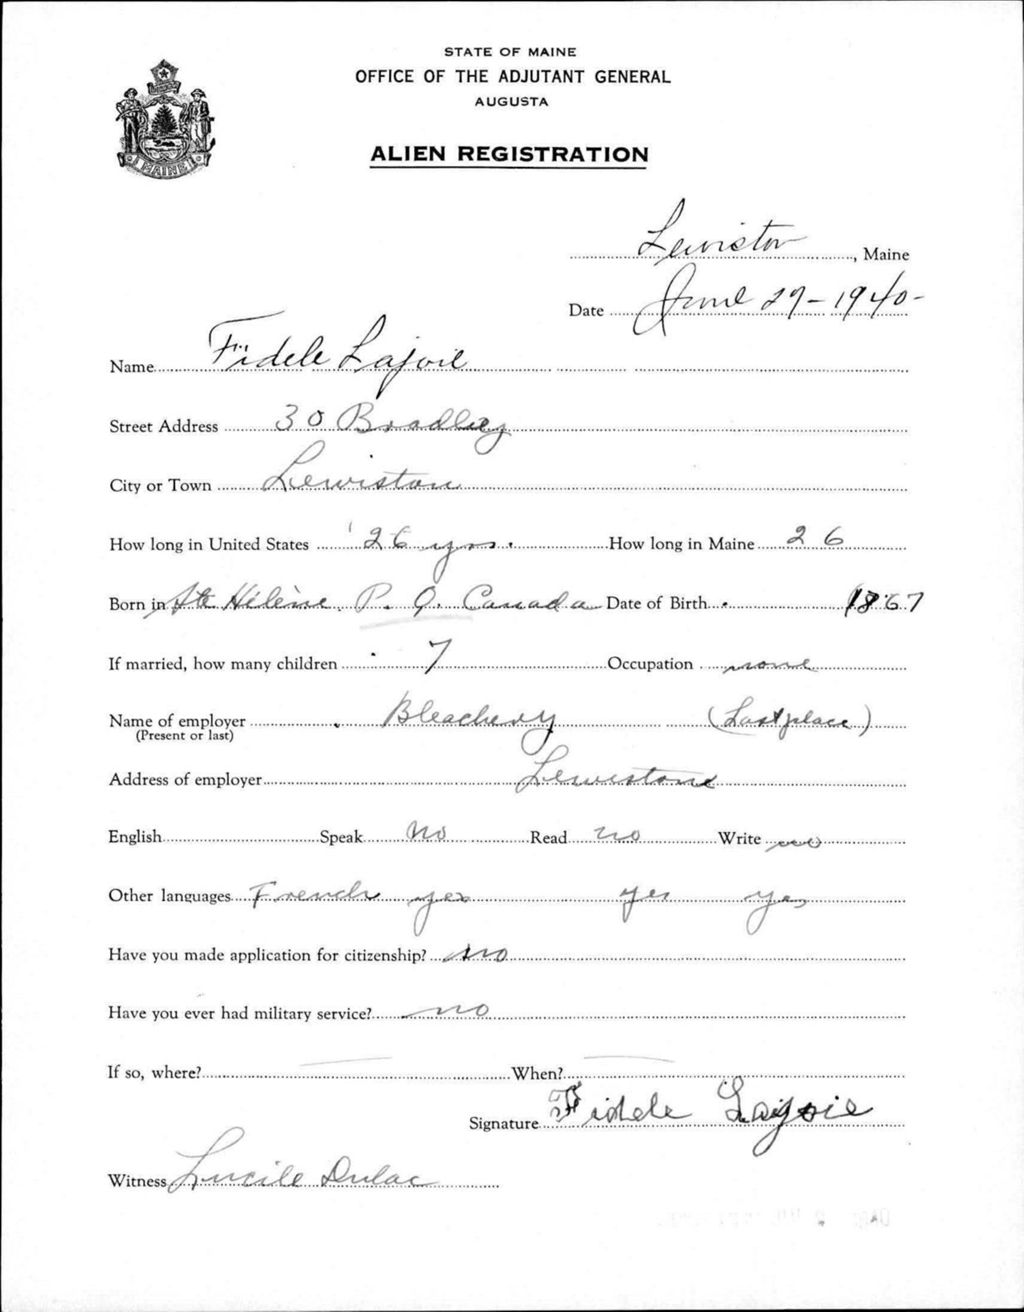 STATE OF MAINE
OFFICE OF THE ADJUTANT GENERAL
AUGUSTA
ALIEN REGISTRATION
MAINE
Lewiston, Maine
Date June 29-1940-
Name Fidele Lajoie
Street Address 30 Bradley
City or Town Lewiston
How long in United States 26 yrs. How long in Maine 26
Born in Ste Hélène. P. Q. Canada Date of Birth 1867
If married, how many children 7 Occupation none
Name of employer Bleachery (Last place)
(Present or last)
Address of employer Lewiston
English Speak no Read no Write no
Other languages French yes yes yes
Have you made application for citizenship? no
Have you ever had military service? no
If so, where? — When? —
Signature Fidele Lajoie
Witness Lucile Dulac